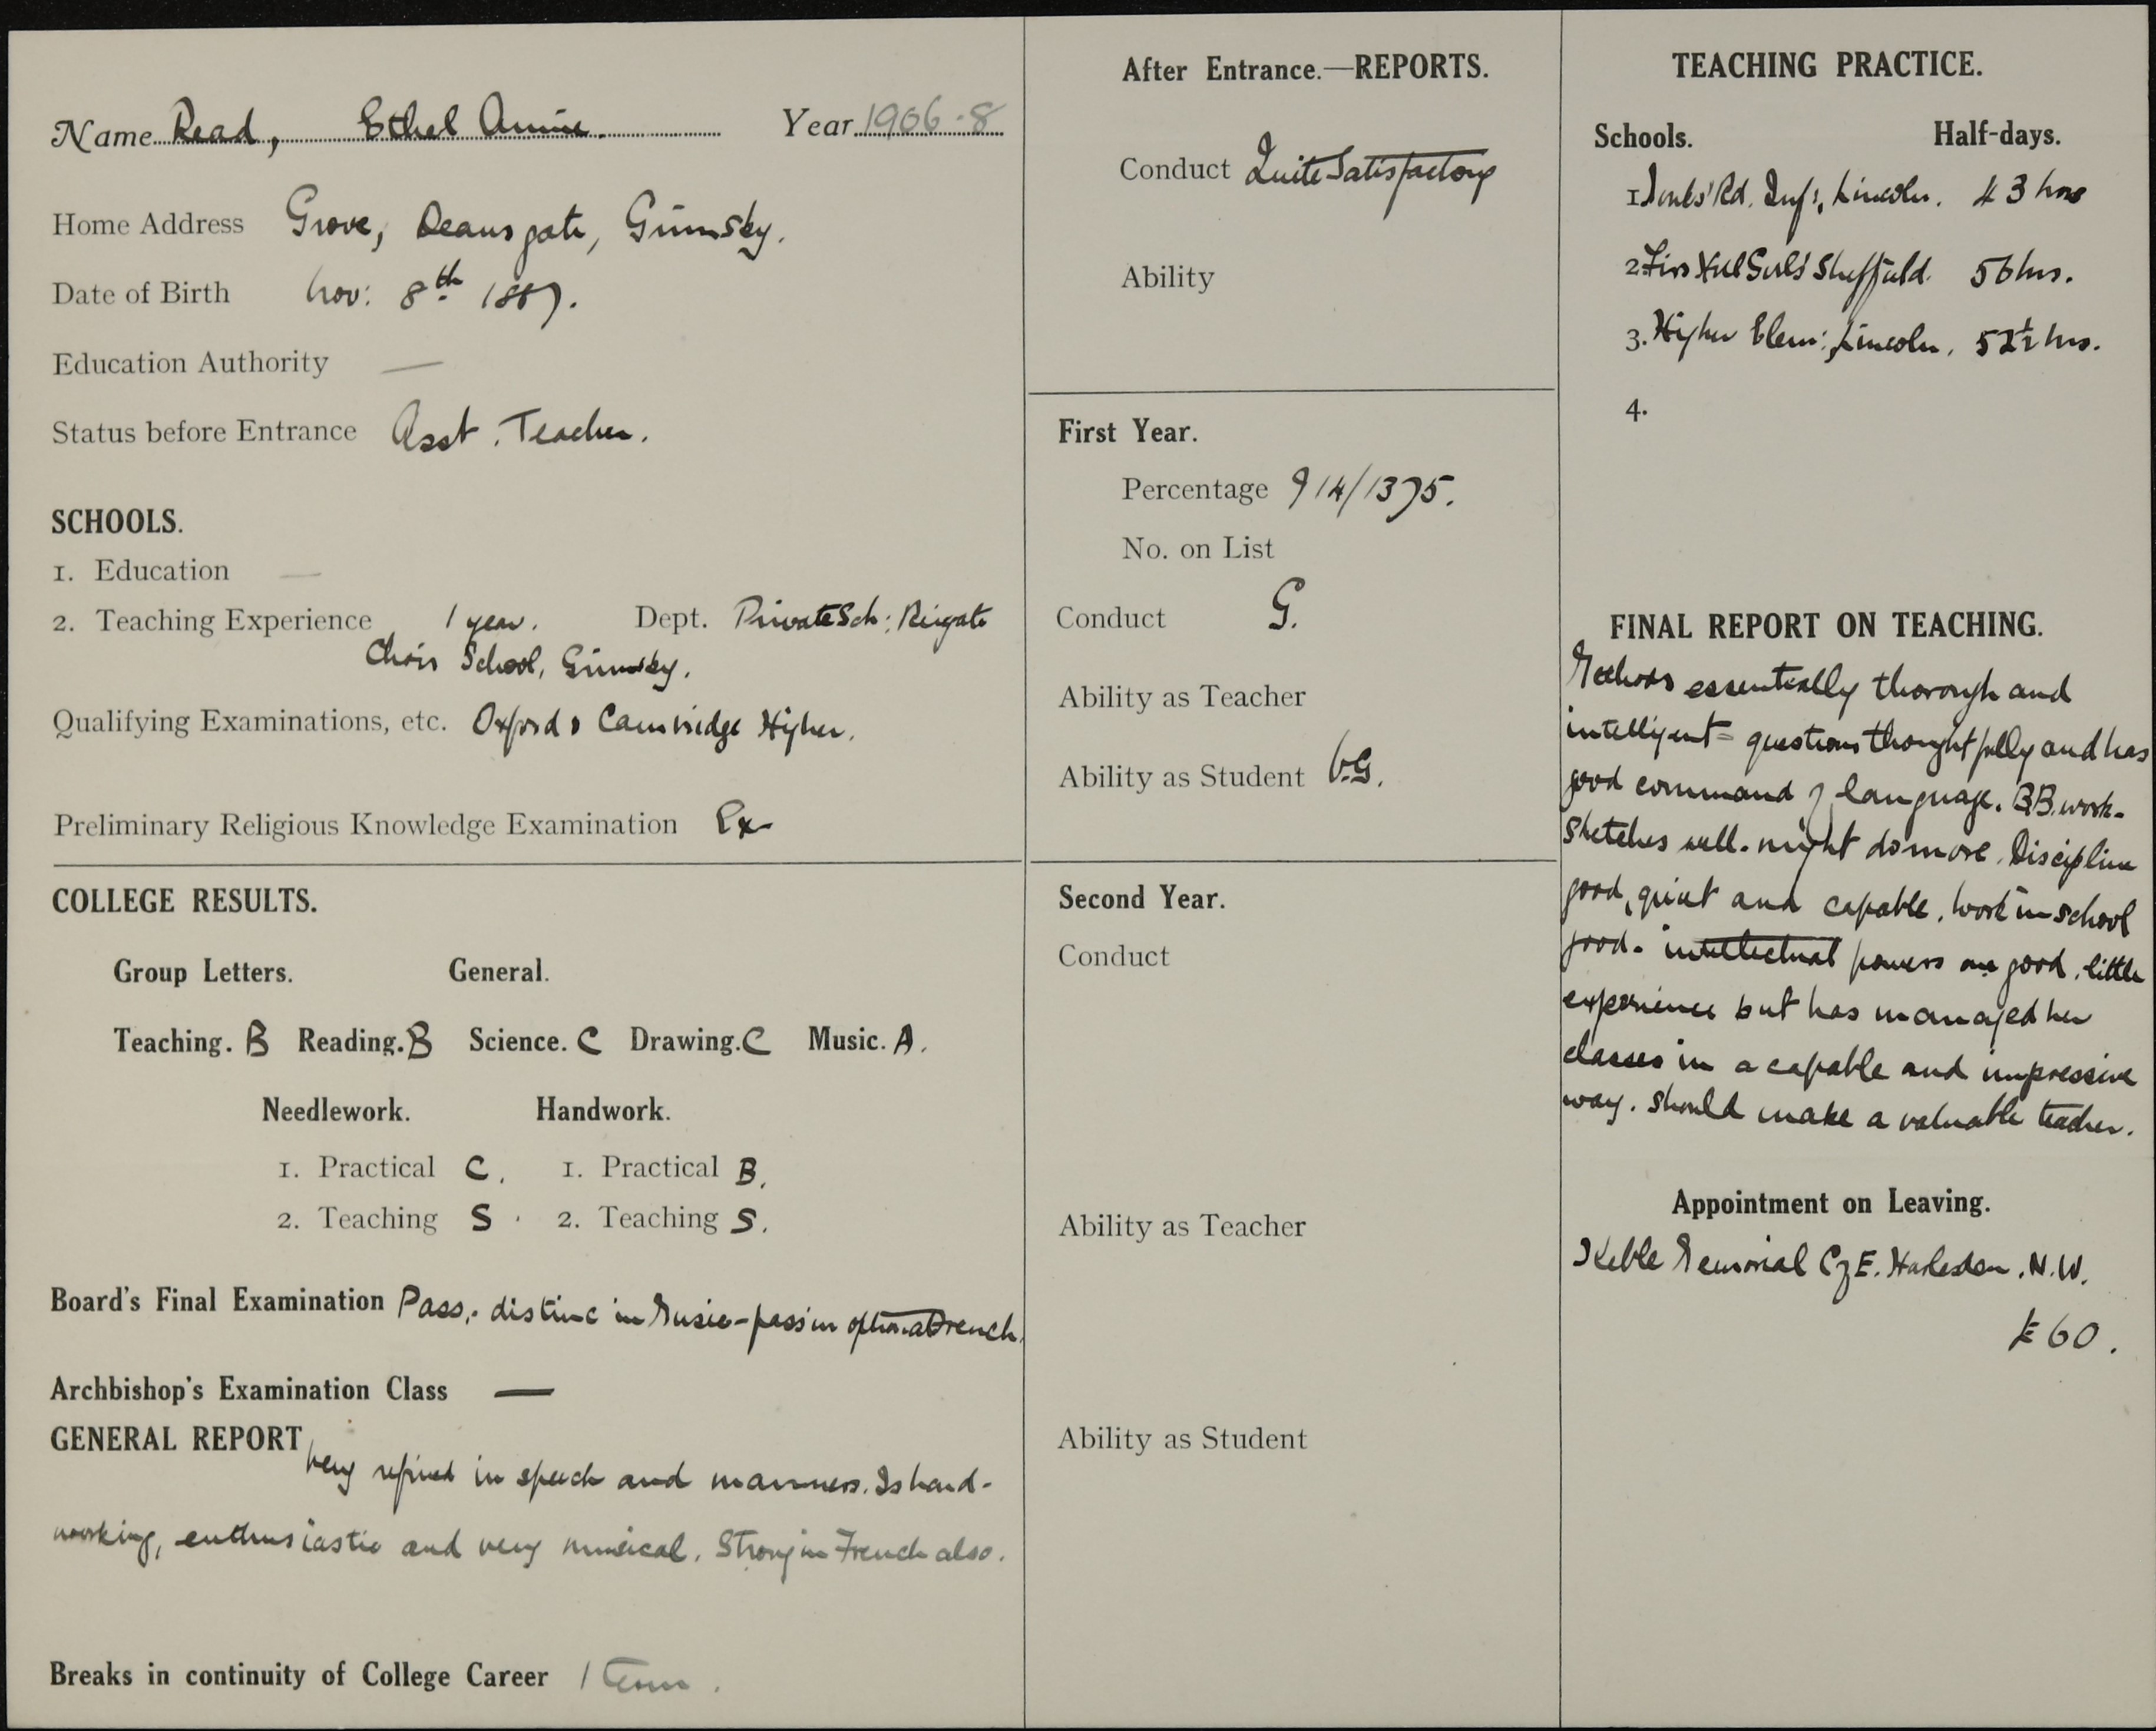 Name Read, Ethel Annie. Year 1906-8
Home Address Grove, Deansgate, Grimsby.
Date of Birth Nov: 8th 1887.
Education Authority —
Status before Entrance Asst. Teacher.
SCHOOLS.
1. Education —
2. Teaching Experience 1 year. Dept. Private Sch: Reigate
Choir School, Grimsby.
Qualifying Examinations, etc. Oxford & Cambridge Higher.
Preliminary Religious Knowledge Examination Ex
COLLEGE RESULTS.
Group Letters. General.
Teaching. B Reading. B Science. C Drawing. C Music. A.
Needlework. Handwork.
1. Practical C. 1. Practical B.
2. Teaching S. 2. Teaching S.
Board's Final Examination Pass. distinc in Music - pass in optional French.
Archbishop's Examination Class —
GENERAL REPORT Very refined in speech and manners. Is hard-
working, enthusiastic and very musical. Strong in French also.
Breaks in continuity of College Career 1 Term.
After Entrance.—REPORTS.
Conduct Quite Satisfactory
Ability
First Year.
Percentage 914/1375.
No. on List
Conduct G.
Ability as Teacher
Ability as Student V.G.
Second Year.
Conduct
Ability as Teacher
Ability as Student
TEACHING PRACTICE.
Schools. Half-days.
1 Monks' Rd. Inf:, Lincoln. 43 hrs
2 Firs Hill Girls' Sheffield. 56 hrs.
3. Higher Elem: Lincoln. 52½ hrs.
4.
FINAL REPORT ON TEACHING.
Methods essentially thorough and
intelligent = questions thoughtfully and has
good command of language. BB. work -
sketches well - might do more. Discipline
good, quiet and capable. Work in school
good - intellectual powers are good. little
experience but has managed her
classes in a capable and impressive
way. Should make a valuable teacher.
Appointment on Leaving.
Keble Memorial C of E. Harlesden. N.W.
£60.